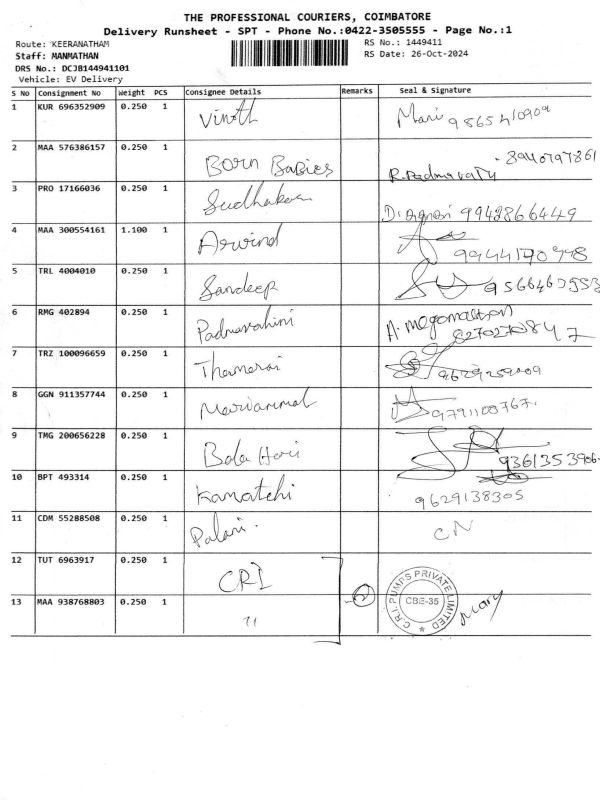 THE PROFESSIONAL COURIERS, COIMBATORE
Delivery Runsheet - SPT - Phone No.:0422-3505555 - Page No.:1
Route: KEERANATHAM RS No.: 1449411
Staff: MANMATHAN RS Date: 26-Oct-2024
DRS No.: DCJB144941101
Vehicle: EV Delivery
S No Consignment No Weight PCS Consignee Details Remarks Seal & Signature
1 KUR 696352909 0.250 1 Vinoth Mari
2 MAA 576386157 0.250 1 Born Babies R.Padmavathy
3 PRO 17166036 0.250 1 Sudhakar 9942866449
4 MAA 300554161 1.100 1 Arwind
5 TRL 4004010 0.250 1 Sandeep
6 RMG 402894 0.250 1 Padmavahini
7 TRZ 100096659 0.250 1 Thamarai
8 GGN 911357744 0.250 1 Mariammal 9791100767.
9 TMG 200656228 0.250 1 Bala Hari 9361353906
10 BPT 493314 0.250 1 Kamatchi 9629138305
11 CDM 55288508 0.250 1 Palani. CN
12 TUT 6963917 0.250 1 CRI
13 MAA 938768803 0.250 1 " 2 Mary
C.R.I. PUMPS PRIVATE LIMITED
CBE-35